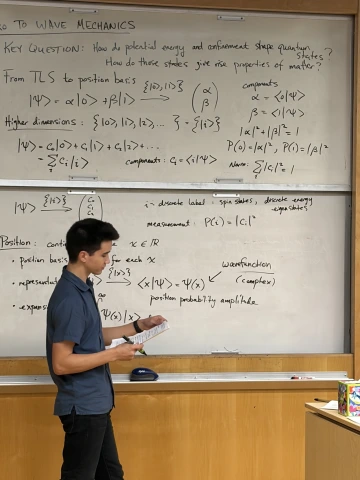 TO WAVE MECHANICS
KEY QUESTION: How do potential energy and confinement shape quantum states?
How do those states give rise properties of matter?
From TLS to position basis
|Ψ⟩ = α|0⟩ + β|1⟩ {|0⟩,|1⟩} → (α β)
components
α = ⟨0|Ψ⟩
β = ⟨1|Ψ⟩
|α|²+|β|² = 1
P(0)=|α|², P(1)=|β|²
Higher dimensions: {|0⟩, |1⟩, |2⟩... } = {|i⟩}
|Ψ⟩ = C₀|0⟩ + C₁|1⟩ + C₂|2⟩ + ...
= Σ Cᵢ|i⟩ components: Cᵢ = ⟨i|Ψ⟩ Norm: Σ|Cᵢ|² = 1
|Ψ⟩ {|i⟩} → (C₀ C₁ C₂
i - discrete label: spin states, discrete energy eigenstates
measurement: P(i) = |Cᵢ|²
Position: x ∈ ℝ
• position basis for each x
• {|x⟩} → ⟨x|Ψ⟩ = Ψ(x) wavefunction
(complex)
position probability amplitude
• Ψ(x)|x⟩